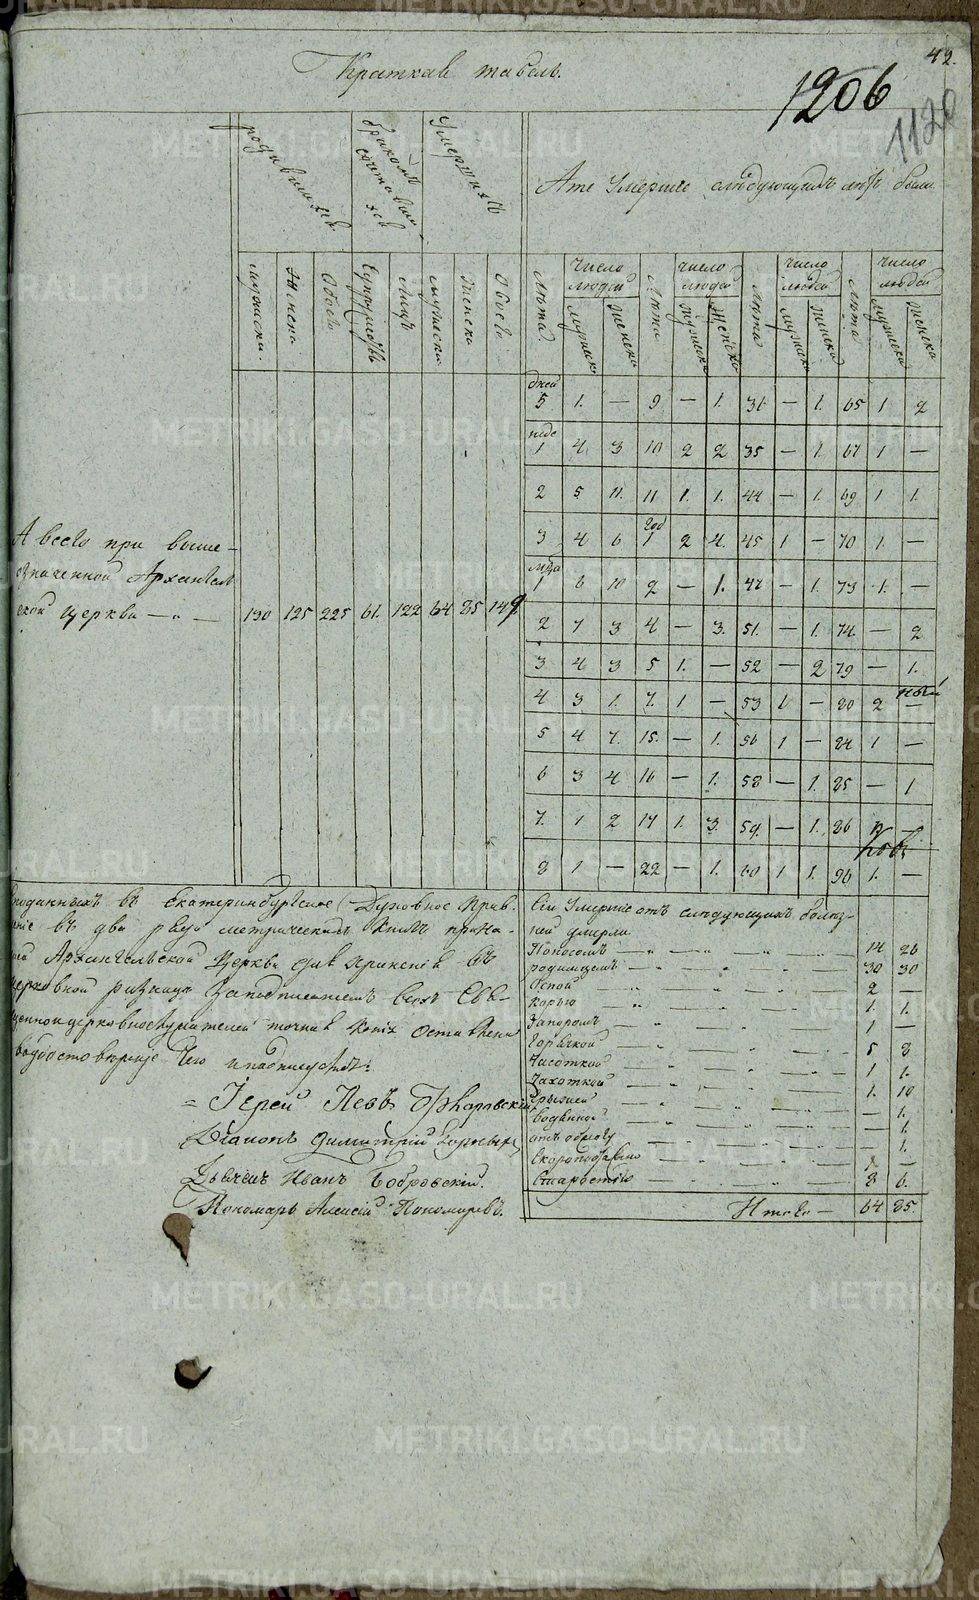 42.
Краткая табель.
1206
1120
родившихся
бракомъ сочетавши хся
Умершихъ
А те Умершіе слѣдующихъ лѣтъ были
мужеска.
Женска
Обоего
Супружествъ
лицъ
мужеска
женска
Обоего
Лѣта
Число людей
Лѣта
число людей
Лѣта
число людей
Лѣта
число людей
мужеска
женска
мужеска
женска
мужеска
женска
мужеска
женска
дней
5 1. — 9 — 1. 31 — 1. 65 1 2
1 4 3 10 2 2 35 — 1. 67 1 —
2 5 11. 11 1. 1. 44 — 1. 69 1 1.
год
3 4 6 1 2 4. 45 1 — 70 1. —
мѣца
1 6 10 2 — 1. 47 — 1. 73 1. —
2 7 3 4 — 3. 51. — 1. 74. — 2
3 4 3 5 1. — 52 — 2 79 — 1.
4 3 1. 7. 1 — 53 1 — 80 2 —
5 4 7. 15. — 1. 56 1 — 84 1 —
6 3 4 16 — 1. 58 — 1. 85 — 1
7. 1 2 17 1. 3. 59. — 1. 86 —
8 1 — 22 — 1. 60 1 1. 96 1. —
А всего при выше-
означенной Архангел
ской церкви — „ — 130 125 225 61. 122 64 85 149
поданныхъ въ Екатеринбургское Духовное Прав-
въ два рядъ метрическихъ книгъ
Архангельской Церкви для храненія въ
церковной ризницѣ За подписаніемъ всехъ Свя-
щенноцерковнослужителей точная копія оставлена
въ достовѣріе чего и подписуемъ:
Іерей Левъ
Діаконъ Димитрій
Дьячекъ Иванъ Бобровскій.
Пономарь Алексій Пономаревъ.
Сіи Умершіе отъ следующихъ болез-
ней умерли
Поносомъ — „ — 14 26
родимцемъ — „ — 30 30
Оспой „ — 2 —
Корью — „ — 1. 1.
Запоромъ — „ — 1 —
Горячкой — „ — 5 8
Чахоткой — „ — 1. 10
Грыжей — „ — — 1.
Водяной — „ — — 1.
— 1.
Скоропостижно — „ —
Старостію — „ — 8 6.
Итого — 64 85.
METRIKI.GASO-URAL.RU